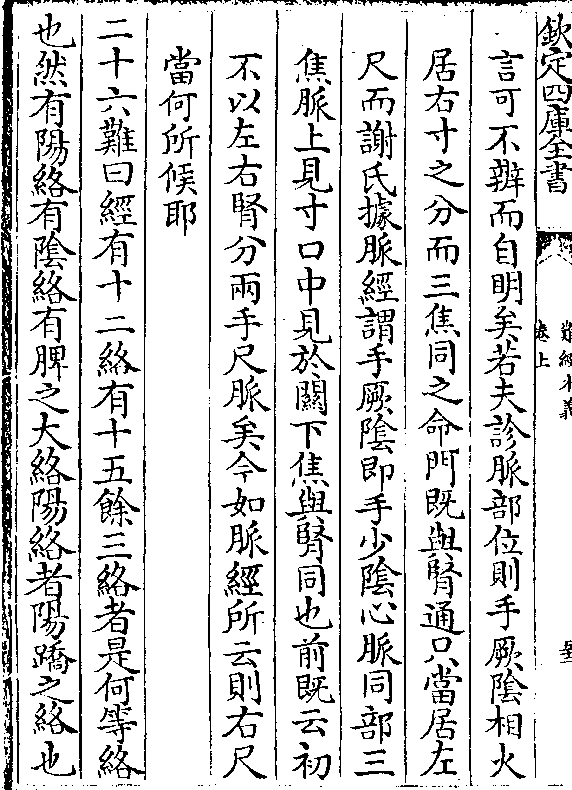 欽定四庫全書
難經本義
卷上
言可不辧而自明矣若夫診脈部位則手厥陰相火
居右寸之分而三焦同之命門既與腎通只當居左
尺而謝氏據脈經謂手厥陰即手少陰心脈同部三
焦脈上見寸口中見於關下焦與腎同也前既云初
不以左右腎分兩手尺脈矣今如脈經所云則右尺
當何所候耶
二十六難曰經有十二絡有十五餘三絡者是何等絡
也然有陽絡有陰絡有脾之大絡陽絡者陽蹻之絡也